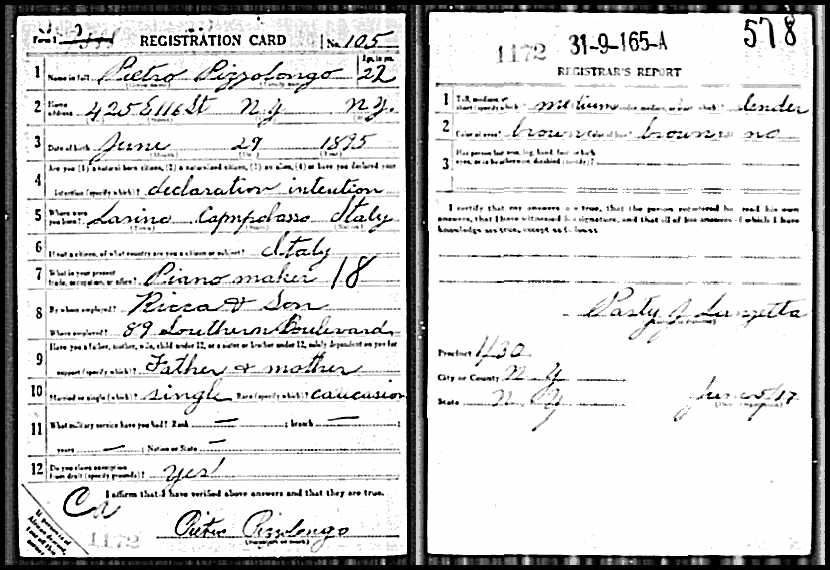 Form 1 REGISTRATION CARD No. 105
1 Name in full Pietro Pizzolongo Age, in yrs. 22
2 Home address 425 E 116 St N.Y. N.Y.
3 Date of birth June 29 1895
Are you (1) a natural-born citizen, (2) a naturalized citizen, (3) an alien, (4) or have you declared your
4 intention (specify which)? declaration intention
5 Where were you born? Larino Campobasso Italy
6 If not a citizen, of what country are you a citizen or subject? Italy
7 What is your present trade, occupation, or office? Piano maker 18
8 By whom employed? Ricca & Son
Where employed? 89 Southern Boulevard
Have you a father, mother, wife, child under 12, or a sister or brother under 12, solely dependent on you for
9 support (specify which)? Father & mother
10 Married or single (which)? single Race (specify which)? caucasion
11 What military service have you had? Rank — ; branch — ;
years — ; Nation or State —
12 Do you claim exemption from draft (specify grounds)? yes
I affirm that I have verified above answers and that they are true.
1172
Pietro Pizzolongo
(Signature or mark)
578
1172 31-9-165-A
REGISTRAR'S REPORT
1 Tall, medium, or short (specify which)? medium Slender, medium, or stout (which)? slender
2 Color of eyes? brown Color of hair? brown no
3 Has person lost arm, leg, hand, foot, or both eyes, or is he otherwise disabled (specify)?
I certify that my answers are true, that the person registered has read his own
answers, that I have witnessed his signature, and that all of his answers of which I have
knowledge are true, except as follows:
Precinct 130
City or County N.Y.
State N.Y. June 5/17